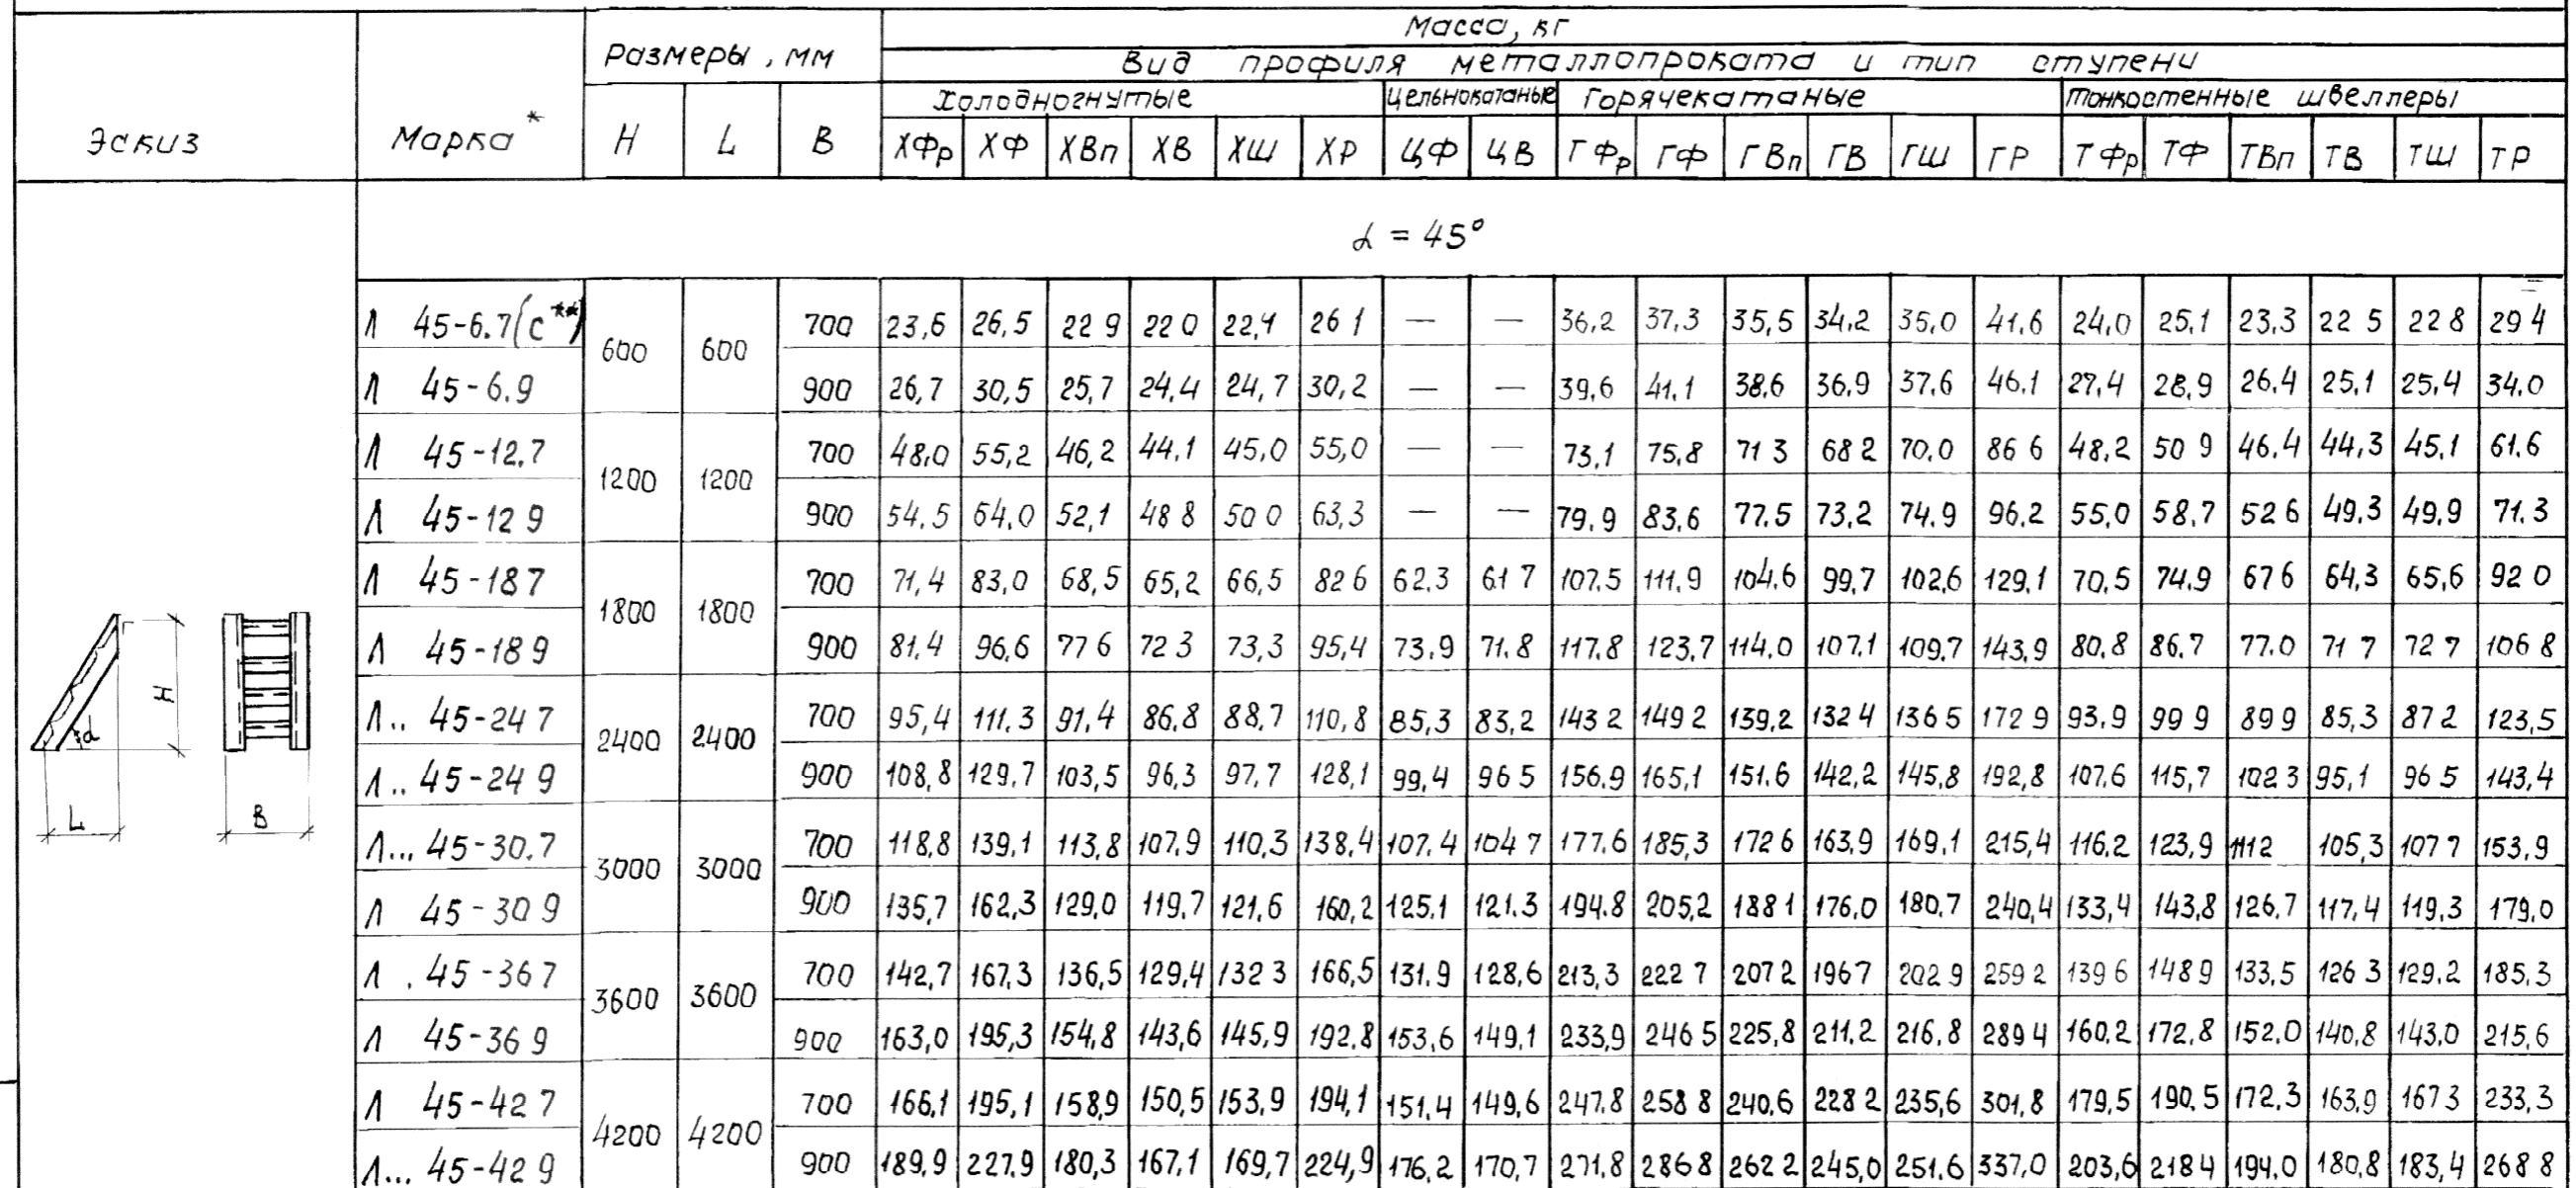 Масса, кг
Размеры, мм
Вид профиля металлопроката и тип ступени
Холодногнутые Цельнокатаные Горячекатаные Тонкостенные швеллеры
Эскиз Марка* H L B ХФр ХФ ХВп ХВ ХШ ХР ЦФ ЦВ ГФр ГФ ГВп ГВ ГШ ГР ТФр ТФ ТВп ТВ ТШ ТР
α = 45°
Л 45-6.7(С**) 600 600 700 23,6 26,5 22 9 22 0 22,4 26 1 — — 36,2 37,3 35,5 34,2 35,0 41,6 24,0 25,1 23,3 22 5 22 8 29 4
Л 45-6.9 900 26,7 30,5 25,7 24,4 24,7 30,2 — — 39,6 41,1 38,6 36,9 37,6 46,1 27,4 28,9 26,4 25,1 25,4 34.0
Л 45-12.7 1200 1200 700 48,0 55,2 46,2 44,1 45,0 55,0 — — 73,1 75,8 71 3 68 2 70,0 86 6 48,2 50 9 46,4 44,3 45,1 61.6
Л 45-12 9 900 54,5 64,0 52,1 48 8 50 0 63,3 — — 79,9 83,6 77,5 73,2 74,9 96,2 55,0 58,7 52 6 49,3 49,9 71.3
Л 45-18 7 1800 1800 700 71,4 83,0 68,5 65,2 66,5 82 6 62,3 61 7 107,5 111,9 104,6 99,7 102,6 129,1 70,5 74,9 67 6 64,3 65,6 92 0
Л 45-18 9 900 81.4 96,6 77 6 72 3 73,3 95,4 73,9 71,8 117,8 123,7 114,0 107,1 109,7 143,9 80,8 86,7 77.0 71 7 72 7 106 8
Л.. 45-24 7 2400 2400 700 95,4 111.3 91,4 86,8 88,7 110,8 85,3 83,2 143 2 149 2 139,2 132 4 136 5 172 9 93,9 99 9 89 9 85,3 87 2 123,5
Л.. 45-24 9 900 108,8 129,7 103,5 96,3 97,7 128,1 99,4 96 5 156,9 165,1 151.6 142,2 145,8 192,8 107,6 115,7 102 3 95,1 96 5 143,4
Л... 45-30.7 3000 3000 700 118,8 139,1 113,8 107,9 110,3 138,4 107.4 104 7 177.6 185,3 172 6 163,9 169,1 215,4 116,2 123,9 111 2 105,3 107 7 153,9
Л 45-30 9 900 135,7 162,3 129,0 119,7 121,6 160,2 125,1 121.3 194.8 205,2 188 1 176,0 180,7 240,4 133,4 143,8 126,7 117,4 119,3 179,0
Л . 45-36 7 3600 3600 700 142,7 167,3 136,5 129,4 132 3 166,5 131.9 128,6 213,3 222 7 207 2 196 7 202 9 259 2 139 6 148 9 133,5 126 3 129,2 185,3
Л 45-36 9 900 163,0 195,3 154,8 143,6 145,9 192,8 153,6 149,1 233,9 246 5 225,8 211,2 216,8 289 4 160,2 172,8 152,0 140,8 143,0 215,6
Л 45-42 7 4200 4200 700 166,1 195,1 158,9 150,5 153,9 194,1 151,4 149,6 247.8 258 8 240,6 228 2 235,6 301,8 179,5 190,5 172,3 163,9 167 3 233,3
Л... 45-42 9 900 189,9 227,9 180,3 167,1 169,7 224,9 176,2 170,7 271,8 286 8 262 2 245,0 251.6 337,0 203,6 218 4 194,0 180,8 183,4 268 8
H
α
L B